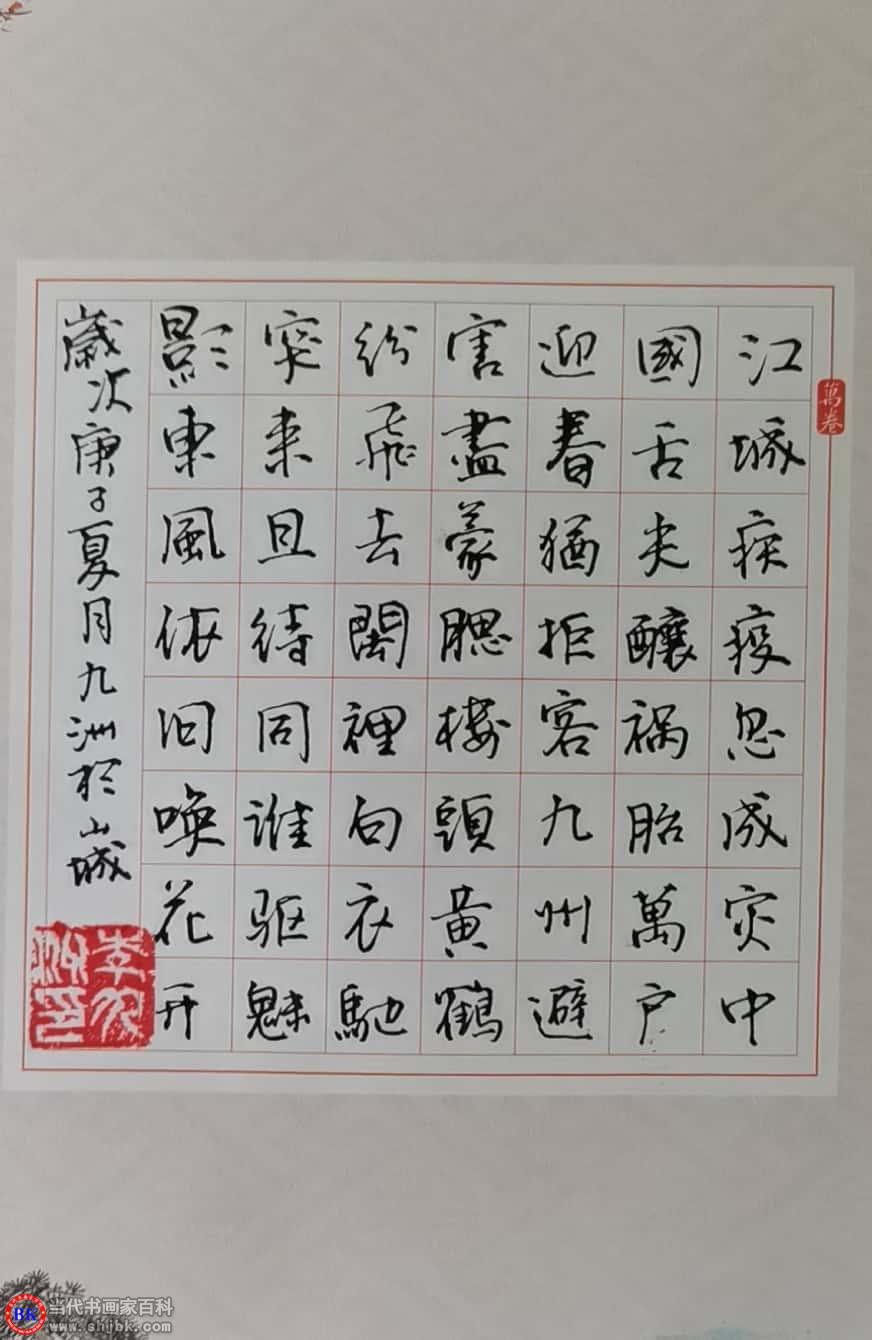 萬卷
江城疾疫忽成灾中
國舌尖釀祸胎萬户
迎春猶拒客九州避
害盡蒙腮楼頭黄鶴
纷飛去裡白衣馳
突来且待同谁驱魅
影東風依旧唤花开
歲次庚子夏月九洲於山城
李九洲印
BK 当代书画家百科
www.shjbk.com